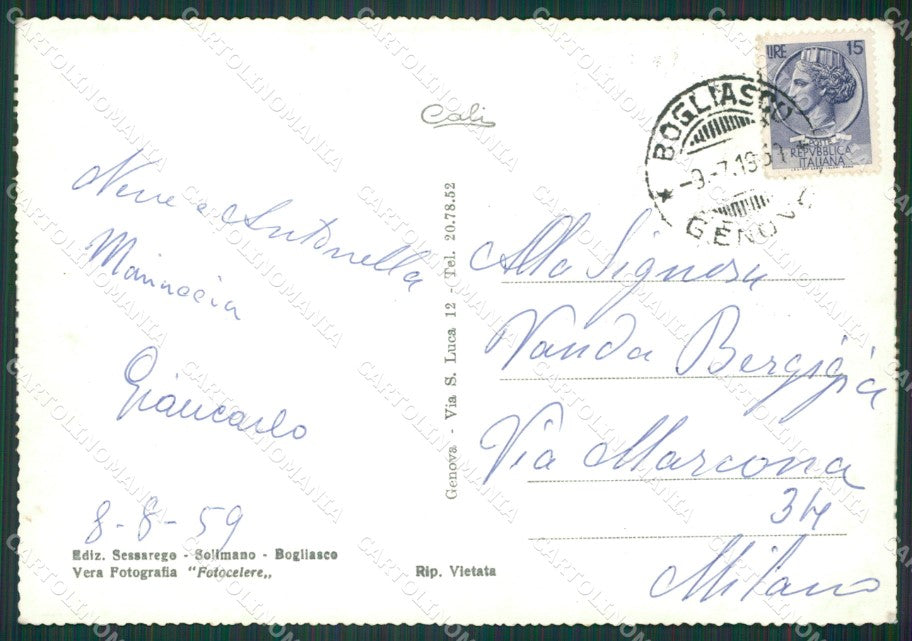 Cali
LIRE 15
REPVBBLICA
ITALIANA
BOGLIASCO
-9.-7.19
GENOVA
Antonella
Giancarlo
8-8-59
Alla Signora
Vanda
Via Marcona
34
Milano
Genova - Via S. Luca 12 - Tel. 20.78.52
Ediz. Sessarego - Solimano - Bogliasco
Vera Fotografia "Fotocelere„
Rip. Vietata
CARTOLINOMANIA